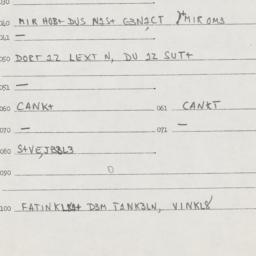 040 MIR HOB+ DUS N1S+ G3N,1CT MIR OM3
041 —
050 DORT 12 LEXT N, DU 12 SUT+
051 —
060 CANK+ 061 CANKT
070 — 071 —
080 S+VE,JBBL3
090
100 FATINKL8+ D3M TANK3LN, VINKL8